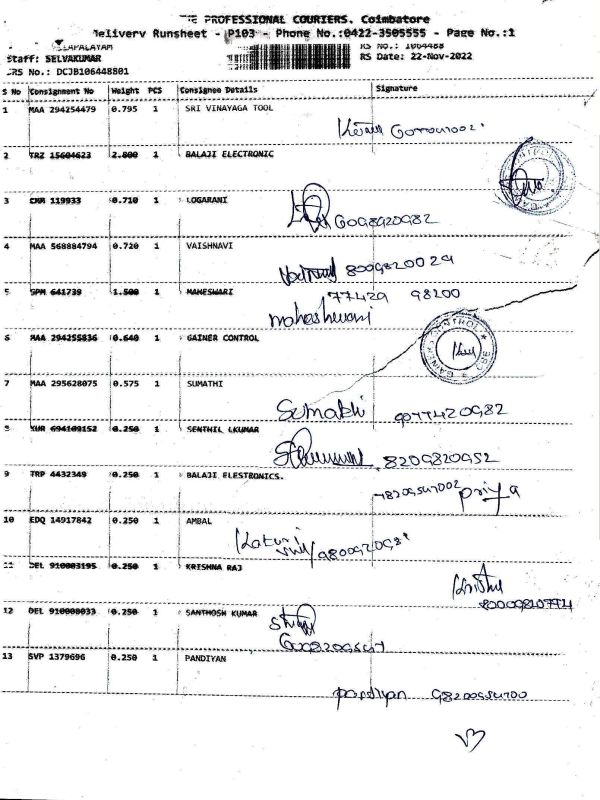 THE PROFESSIONAL COURIERS. Coimbatore
Delivery Runsheet - P103 - Phone No.:0422-3505555 - Page No.:1
RS No.: 1064488
Staff: SELVAKUMAR RS Date: 22-Nov-2022
DRS No.: DCJB106448801
S No Consignment No Weight PCS Consignee Details Signature
1 MAA 294254479 0.795 1 SRI VINAYAGA TOOL
2 TRZ 15604623 2.800 1 BALAJI ELECTRONIC
3 CMM 119933 0.710 1 LOGARANI
6098920982
4 MAA 568884794 0.720 1 VAISHNAVI
8009820029
5 SPM 641739 1.500 1 MAHESWARI
77429 98200
maheshwari
6 MAA 294255836 0.640 1 GAINER CONTROL
7 MAA 295628075 0.575 1 SUMATHI
Sumathi 9077420982
8 XUR 694109152 0.250 1 SENTHIL LKUMAR
8209820952
9 TRP 4432349 0.250 1 BALAJI ELESTRONICS.
Priya
10 EDQ 14917842 0.250 1 AMBAL
11 DEL 910003195 0.250 1 KRISHNA RAJ
12 DEL 910008033 0.250 1 SANTHOSH KUMAR
13 SVP 1379696 0.250 1 PANDIYAN
pandiyan